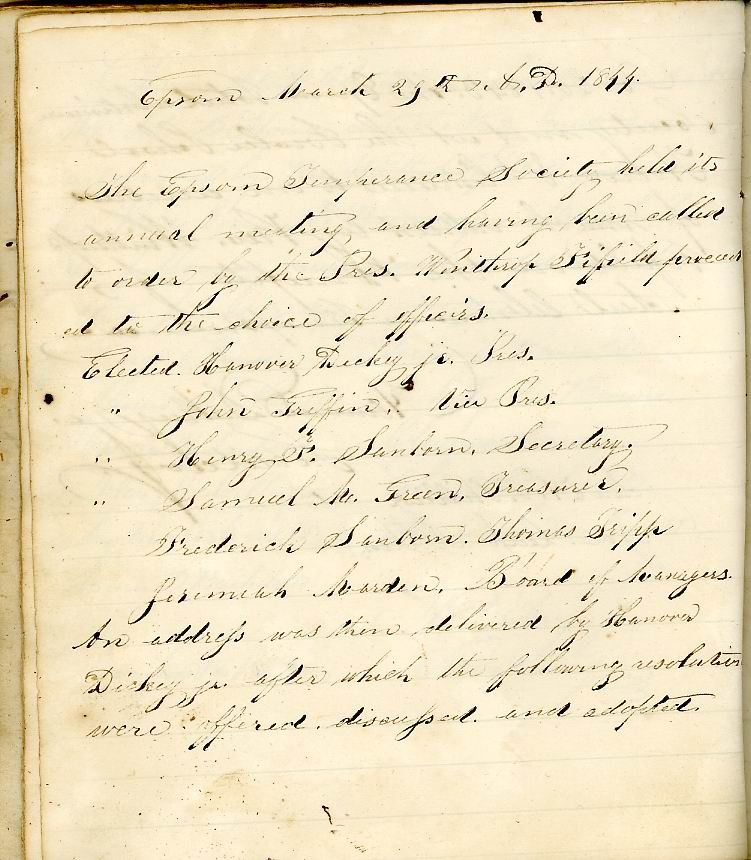 Epsom March 29th A.D. 1844.
The Epsom Temperance Society held its
annual meeting, and having been called
to order by the Pres. Winthrop Fifield proceed
ed to the choice of officers.
Elected. Hanover Dickey jr. Pres.
" John Griffin, Vice Pres.
" Henry F. Sanborn, Secretary.
" Samuel M. Green, Treasurer.
Frederick Sanborn. Thomas Tripp
Jeremiah Marden, Board of Managers.
An address was then delivered by Hanover
Dickey jr. after which the following resolution
were offered. discussed. and adopted.